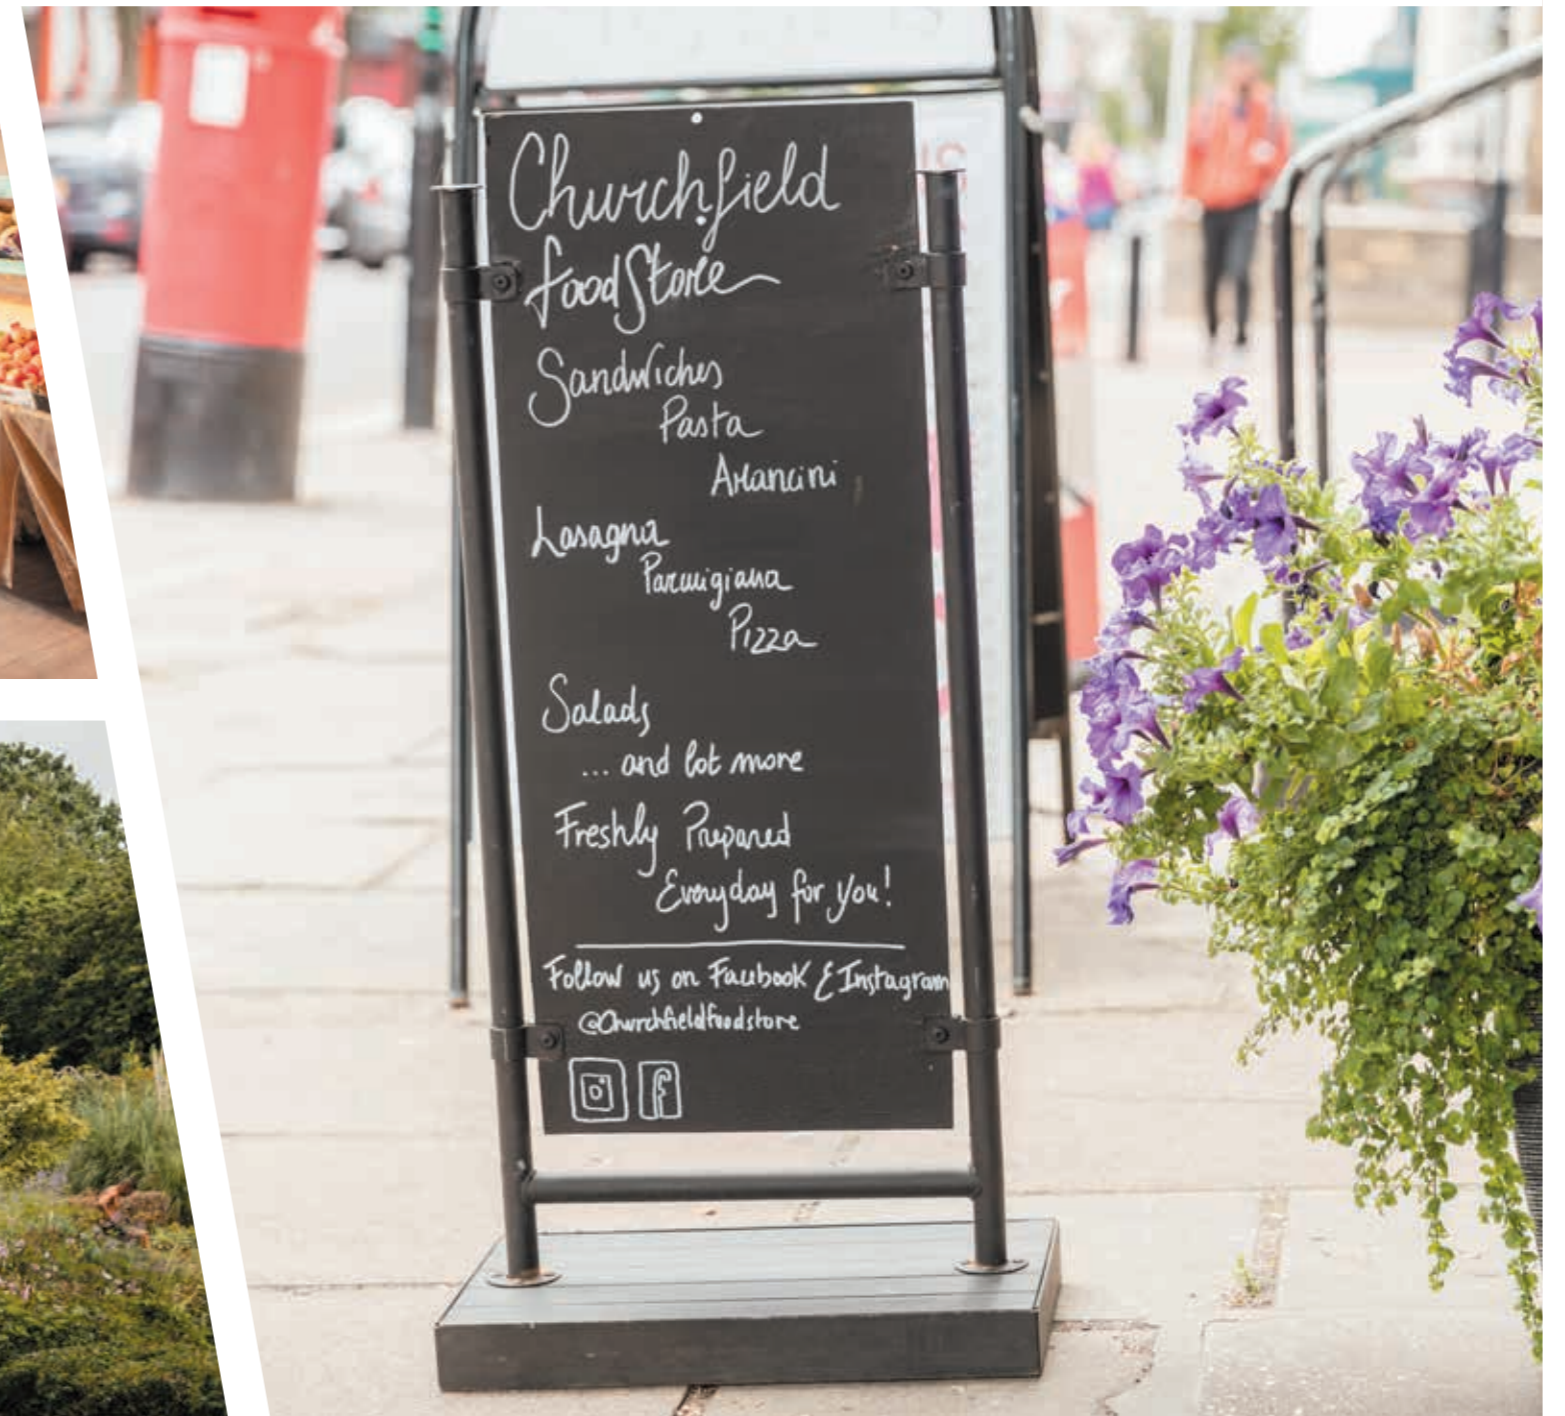 Churchfield
foodStore
Sandwiches
Pasta
Arancini
Lasagna
Parmigiana
Pizza
Salads
... and lot more
Freshly Prepared
Everyday for you!
Follow us on Facebook & Instagram
@Churchfieldfoodstore